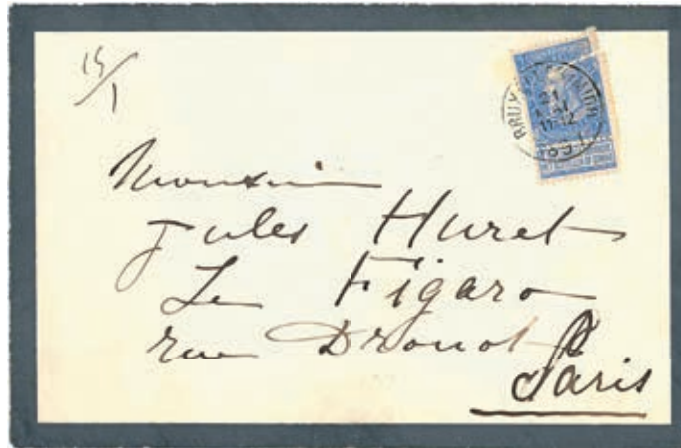 15/1
21
11-12
Monsieur
Jules Huret
Le Figaro
rue Drouot
Paris